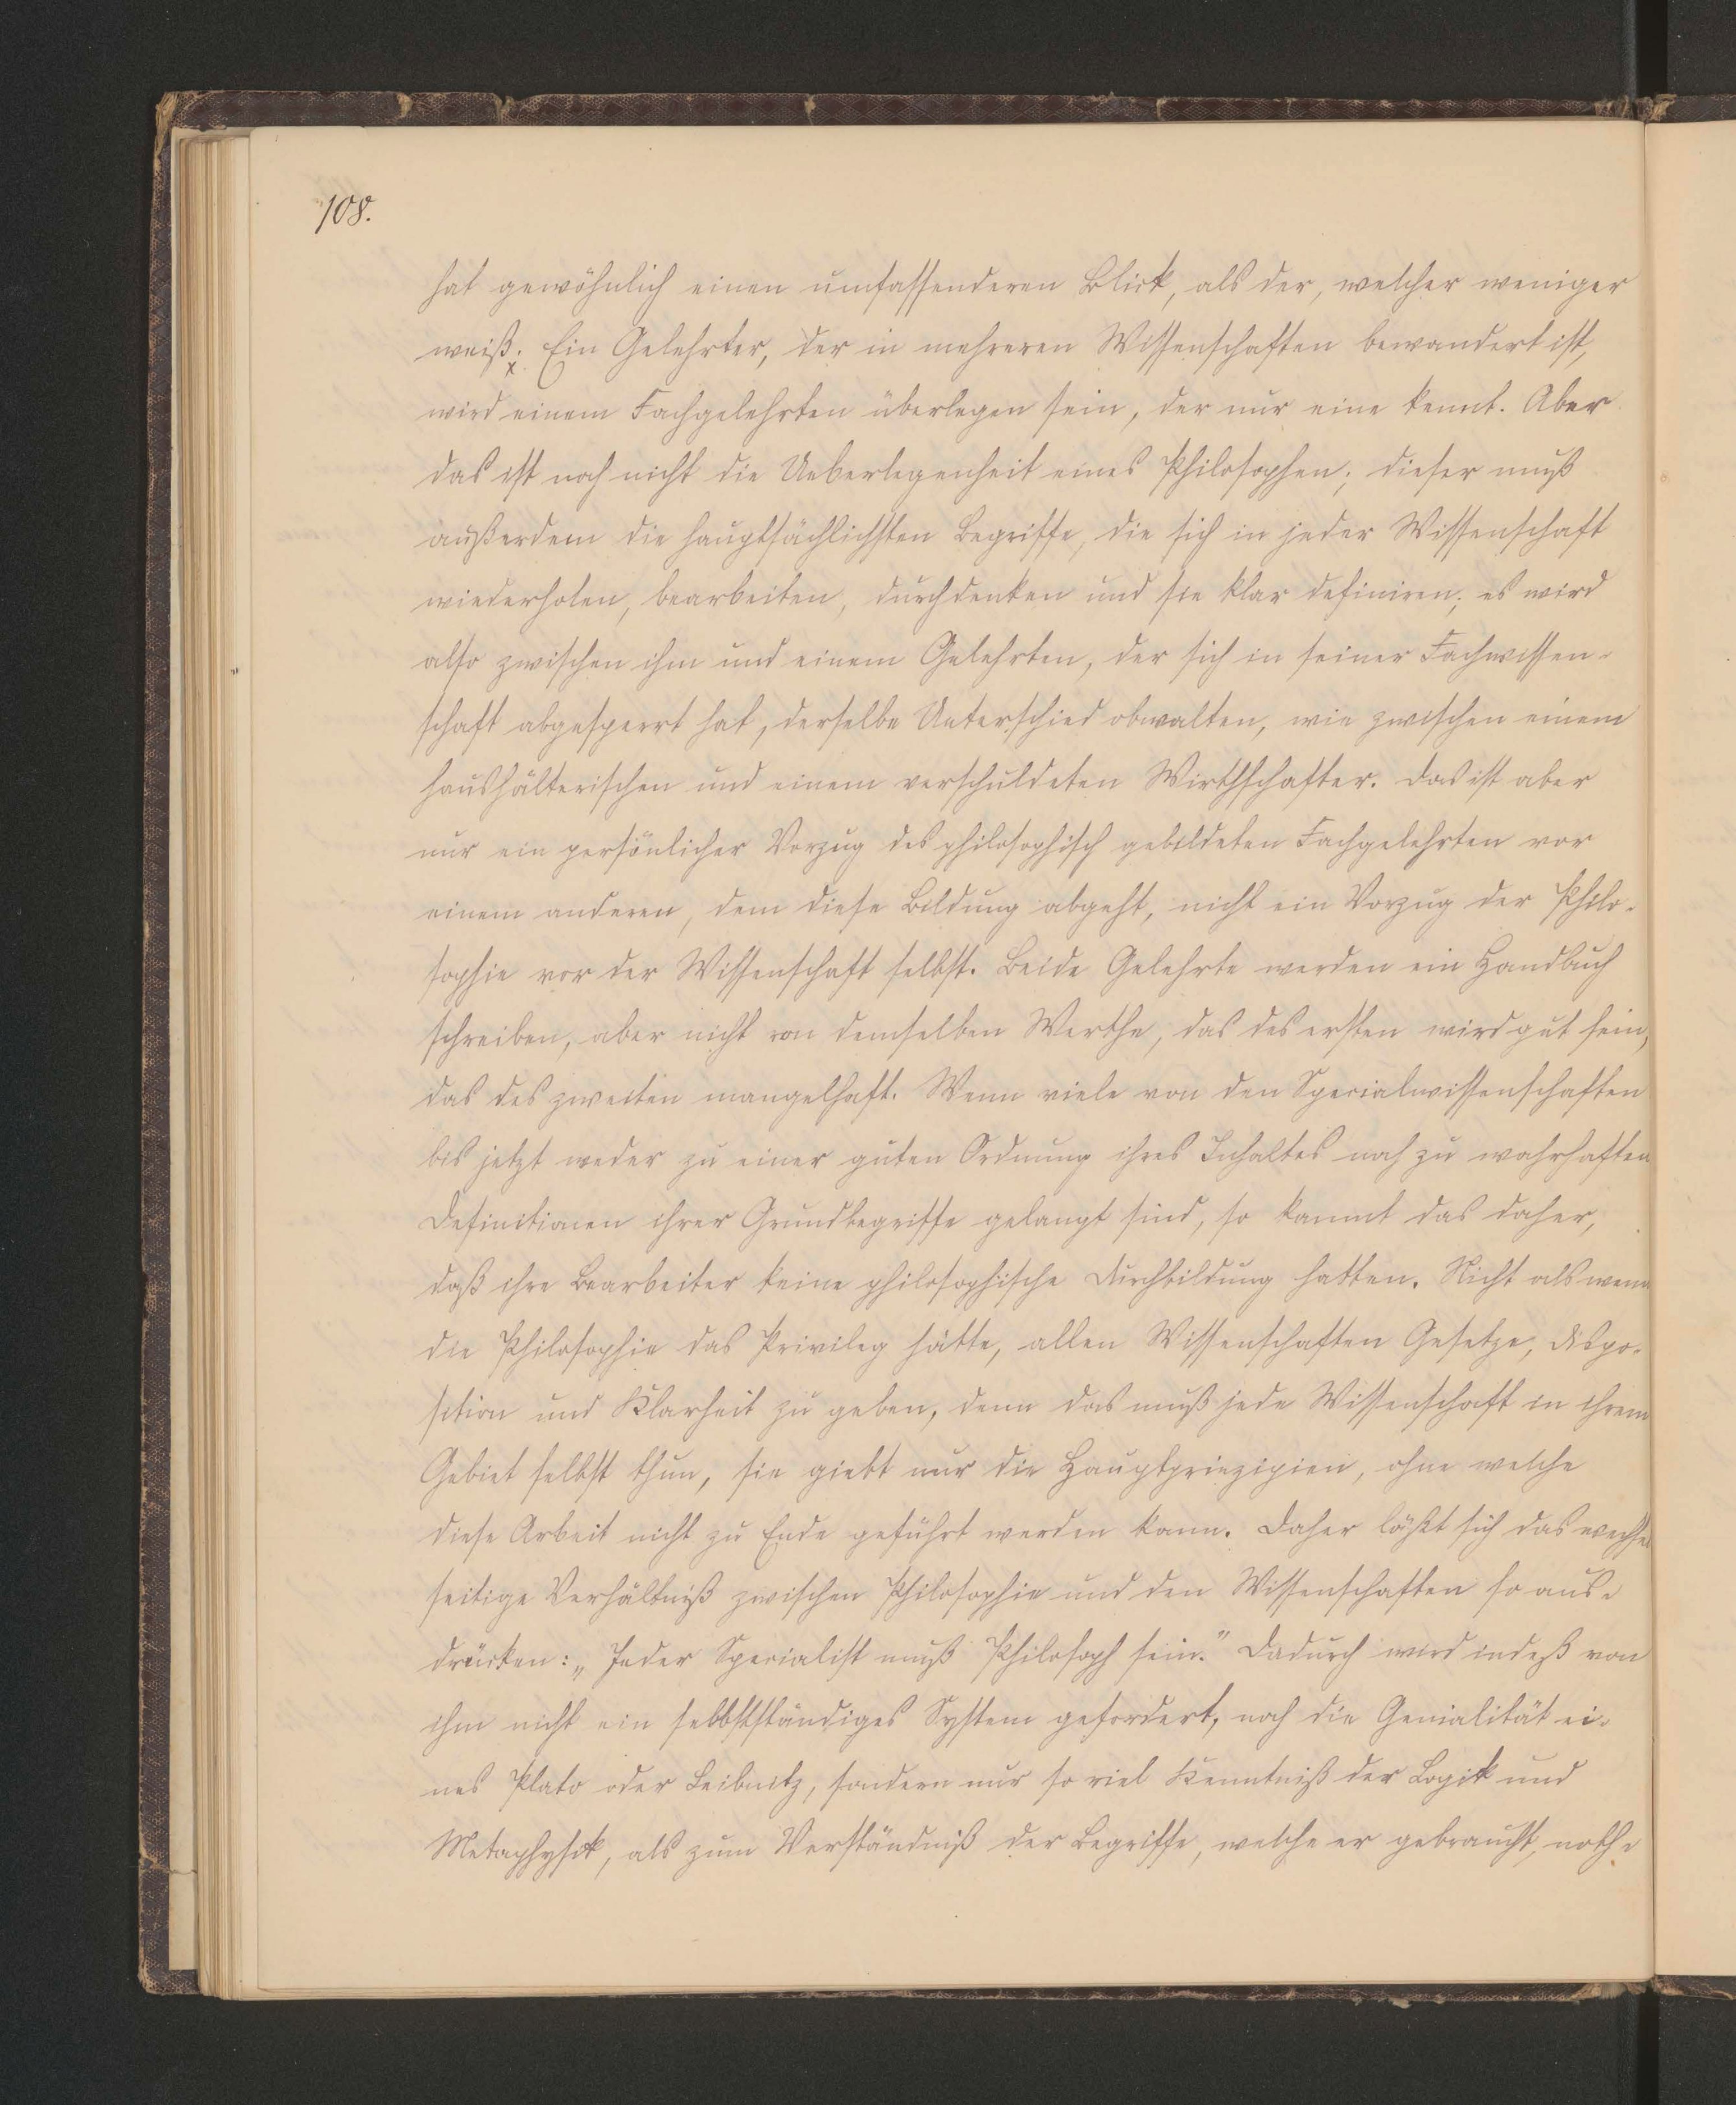 108.
hat gewöhnlich einen umfassenderen Blick, als der, welcher weniger
weiß; Ein Gelehrter, der in mehreren Wissenschaften bewandert ist,
wird einem Fachgelehrten überlegen sein, der nur eine kennt. Aber
das ist noch nicht die Ueberlegenheit eines Philosophen; dieser muß
außerdem die hauptsächlichsten Begriffe, die sich in jeder Wissenschaft
wiederholen, bearbeiten, durchdenken und sie klar definiren; es wird
also zwischen ihm und einem Gelehrten, der sich in seiner Fachwissen-
schaft abgesperrt hat, derselbe Unterschied obwalten, wie zwischen einem
haushälterischen und einem verschuldeten Wirthschafter. Das ist aber
nur ein persönlicher Vorzug des philosophisch gebildeten Fachgelehrten vor
einem anderen, dem diese Bildung abgeht, nicht ein Vorzug der Philo-
sophie vor der Wissenschaft selbst. Beide Gelehrte werden ein Handbuch
schreiben, aber nicht von demselben Werthe, das des ersten wird gut sein,
das des zweiten mangelhaft. Wenn viele von den Specialwissenschaften
bis jetzt weder zu einer guten Ordnung ihres Inhaltes noch zu wahrhaften
Definitionen ihrer Grundbegriffe gelangt sind, so kommt das daher,
daß ihre Bearbeiter keine philosophische Durchbildung hatten. Nicht als wenn
die Philosophie das Privileg hätte, allen Wissenschaften Gesetze, Dispo-
sition und Klarheit zu geben, denn das muß jede Wissenschaft in ihrem
Gebiet selbst thun, sie giebt nur die Hauptprinzipien, ohne welche
diese Arbeit nicht zu Ende geführt werden kann. Daher läßt sich das wechsel
seitige Verhältniß zwischen Philosophie und den Wissenschaften so aus-
drücken: „Jeder Specialist muß Philosoph sein." Dadurch wird indeß von
ihm nicht ein selbstständiges System gefordert, noch die Genialität ei-
nes Plato oder Leibnitz, sondern nur so viel Kenntniß der Logik und
Metaphysik, als zum Verständniß der Begriffe, welche er gebraucht, noth-